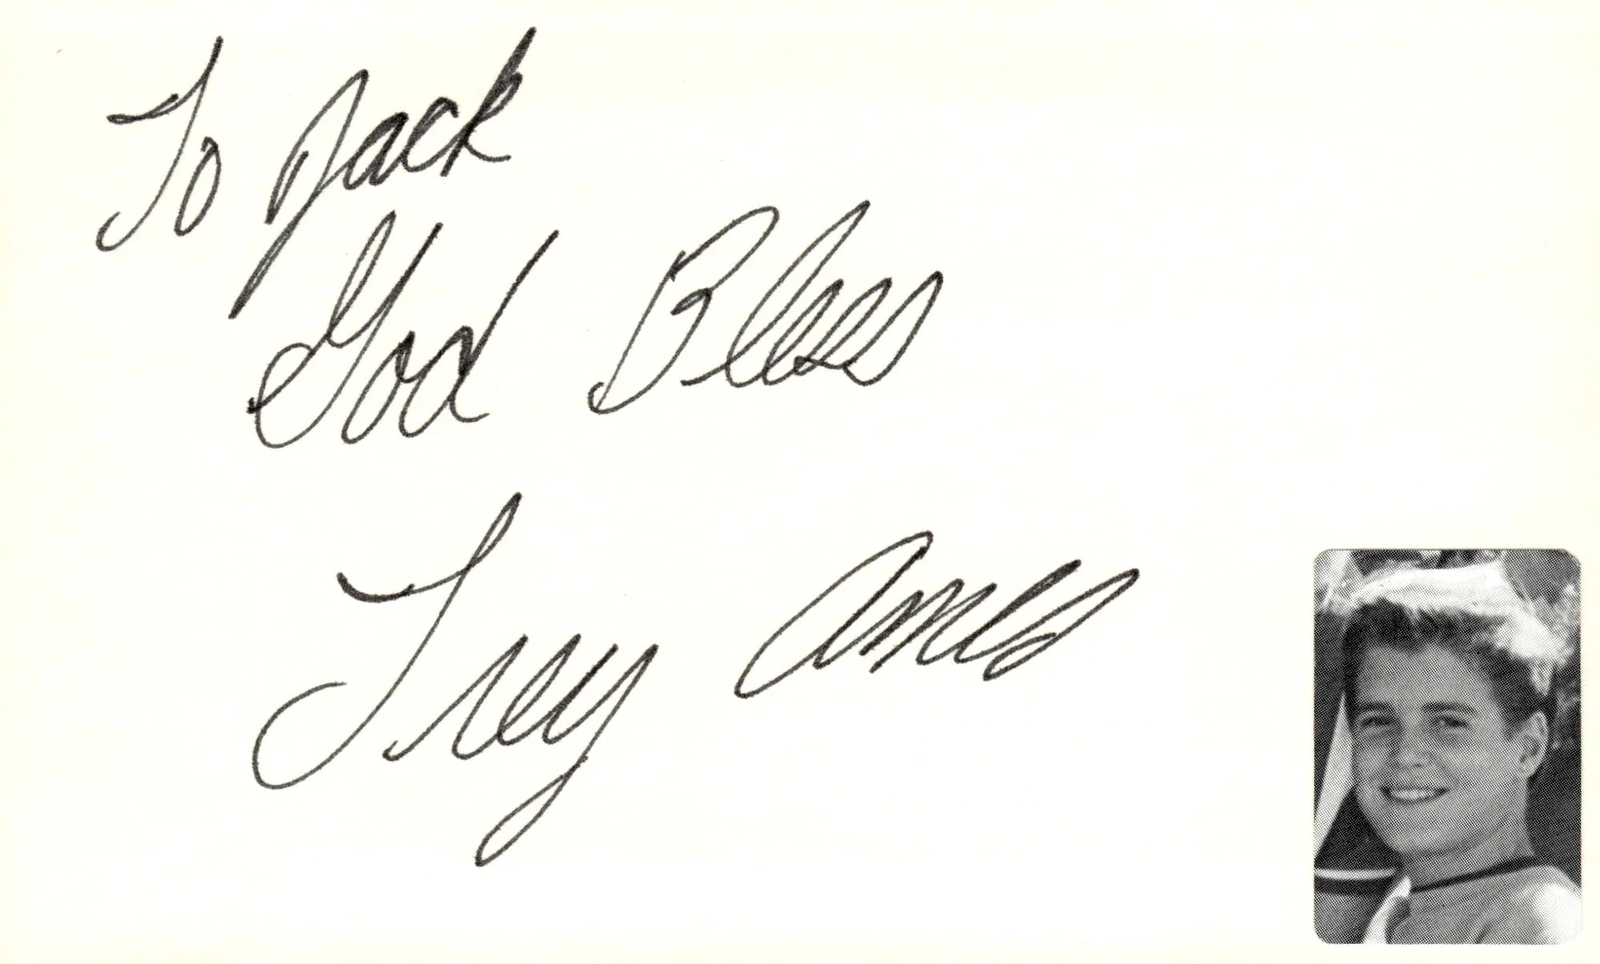 To Jack
God Bless
Trey Ames